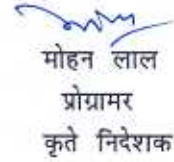 मोहन लाल
प्रोग्रामर
कृते निदेशक